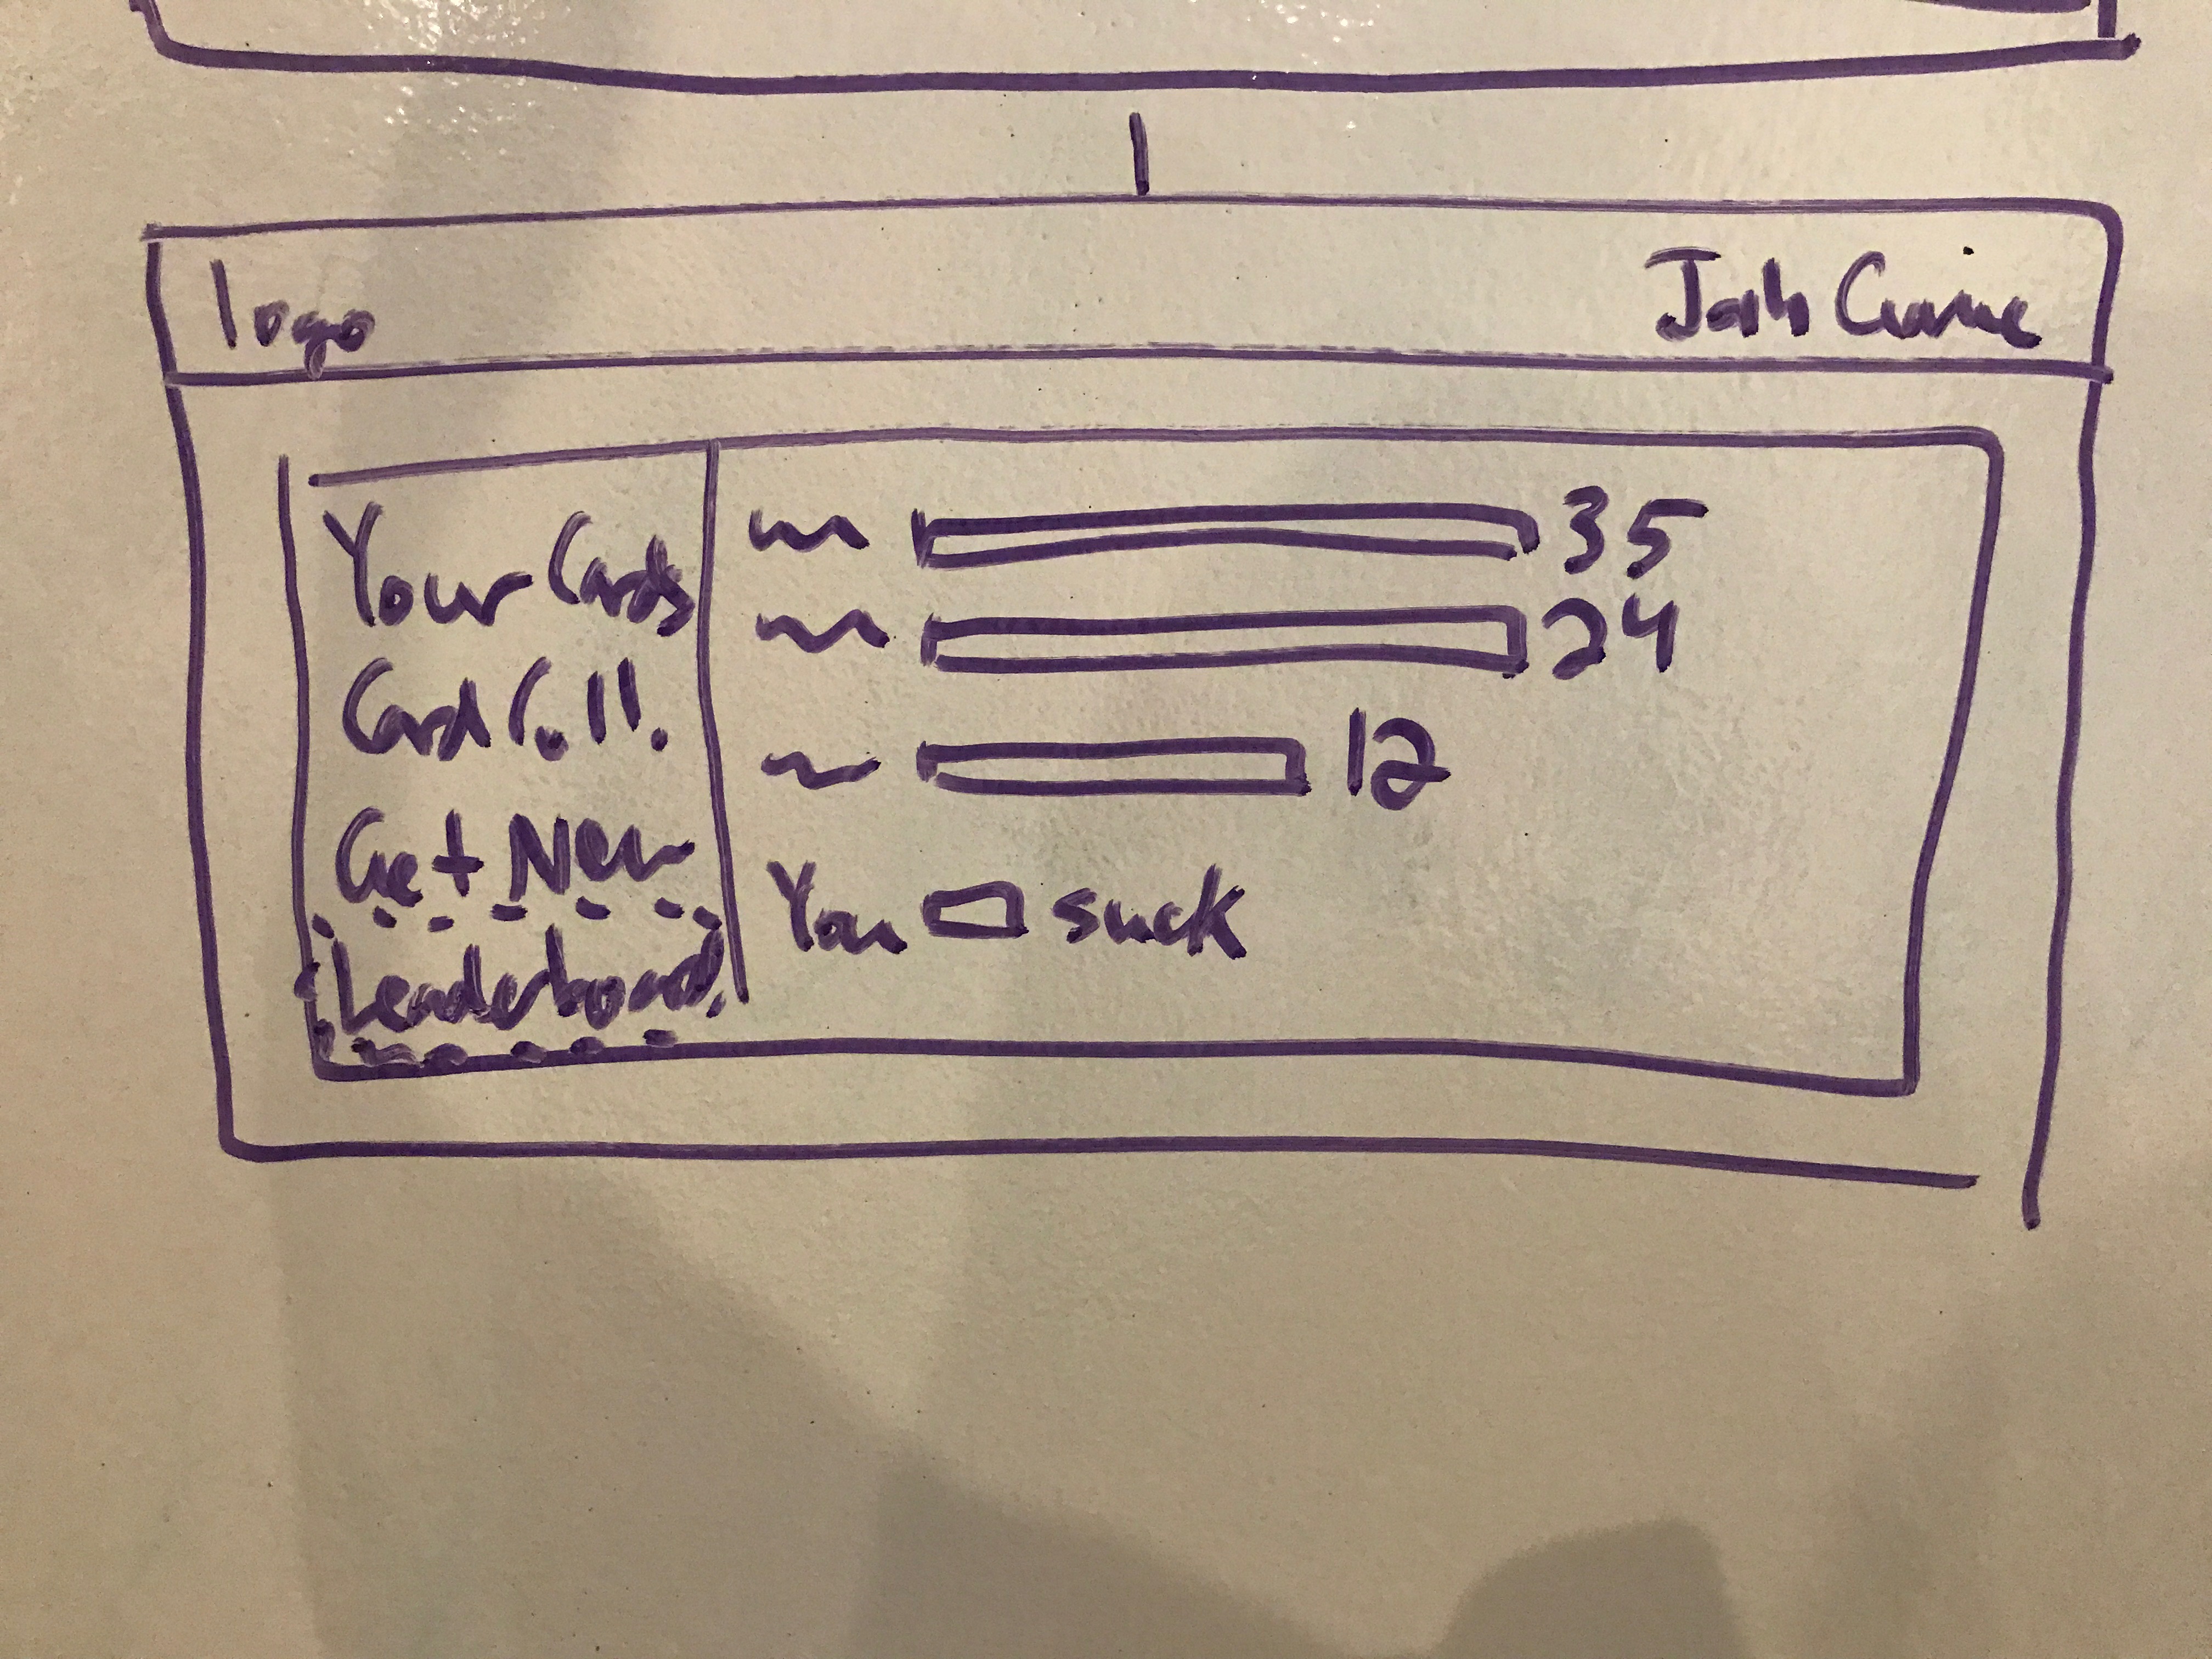 logo
Josh Currie
Your Cards
Card Coll.
Get New
Leaderboard
35
24
12
You suck